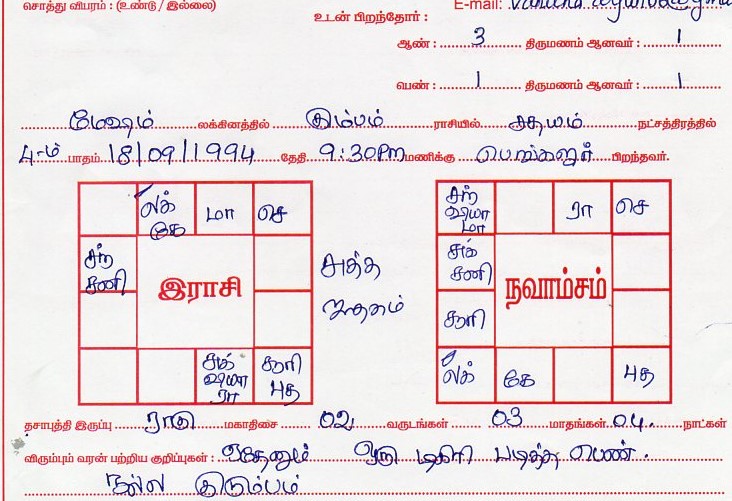 சொத்து விபரம் : (உண்டு / இல்லை)
E-mail:
உடன் பிறந்தோர் :
ஆண் : 3 திருமணம் ஆனவர் : 1
பெண் : 1 திருமணம் ஆனவர் : 1
மேஷம் லக்கினத்தில் கும்பம் ராசியில் சதயம் நட்சத்திரத்தில்
4-ம் பாதம் 18/09/1994 தேதி 9:30Pm மணிக்கு பெங்களூர் பிறந்தவர்.
லக் கே
மா
செ
சந் சனி
இராசி
சுக் வியா ரா
சூரி புத
சந் வியா மா
ரா
செ
சுக் சனி
நவாம்சம்
சூரி
லக்
கே
புத
தசாபுத்தி இருப்பு ராகு மகாதிசை 02 வருடங்கள் 03 மாதங்கள் 04 நாட்கள்
விரும்பும் வரன் பற்றிய குறிப்புகள் : ஏதேனும் ஒரு டிகிரி படித்த பெண்.
நல்ல குடும்பம்